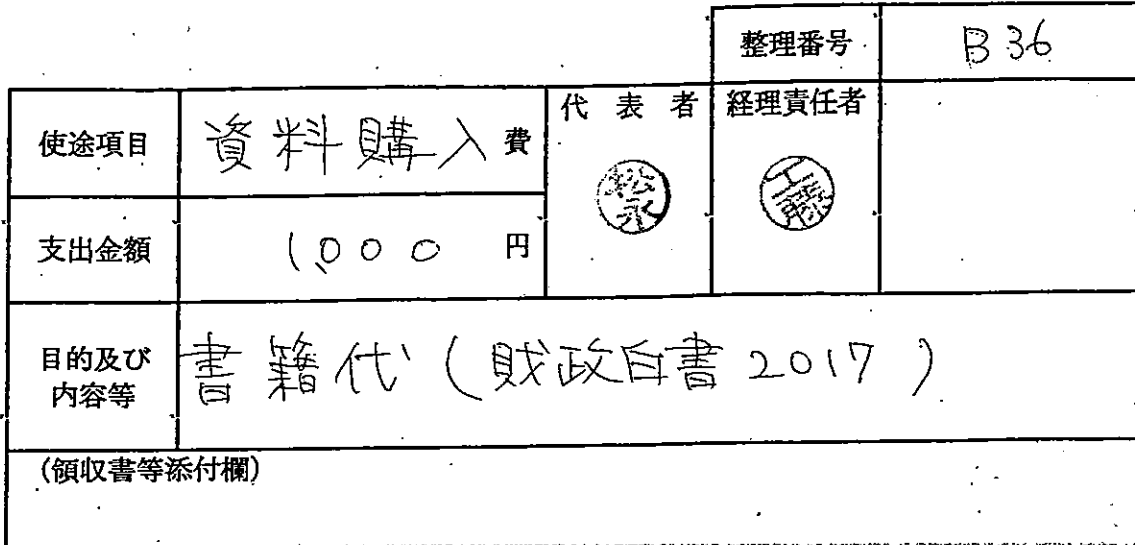 整理番号 B36
使途項目 資料購入費
代表者 経理責任者
松永 工藤
支出金額 1,000 円
目的及び内容等 書籍代(財政白書2017)
(領収書等添付欄)